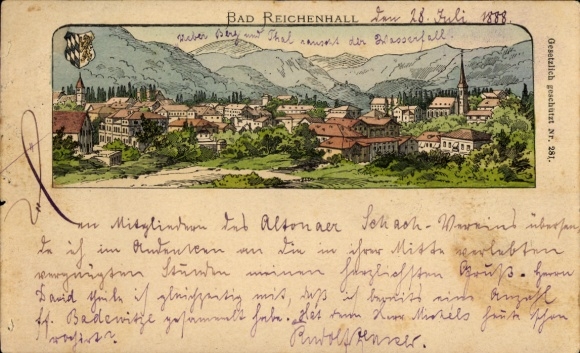 BAD REICHENHALL den 28. Juli 1888.
Ueber Berg und Thal rauscht der Wasserfall.
Gesetzlich geschützt Nr. 281.
Den Mitgliedern des Altonaer Schach-Vereins übersen-
de ich im Andenken an die in ihrer Mitte verlebten
vergnügten Stunden meinen herzlichsten Gruß. Herrn
David theile ich gleichzeitig mit, daß ich bereits eine Anzahl
ff. Badewitze gesammelt habe. "Hat denn Herr Michels heute schon
rochirt"? Rudolf